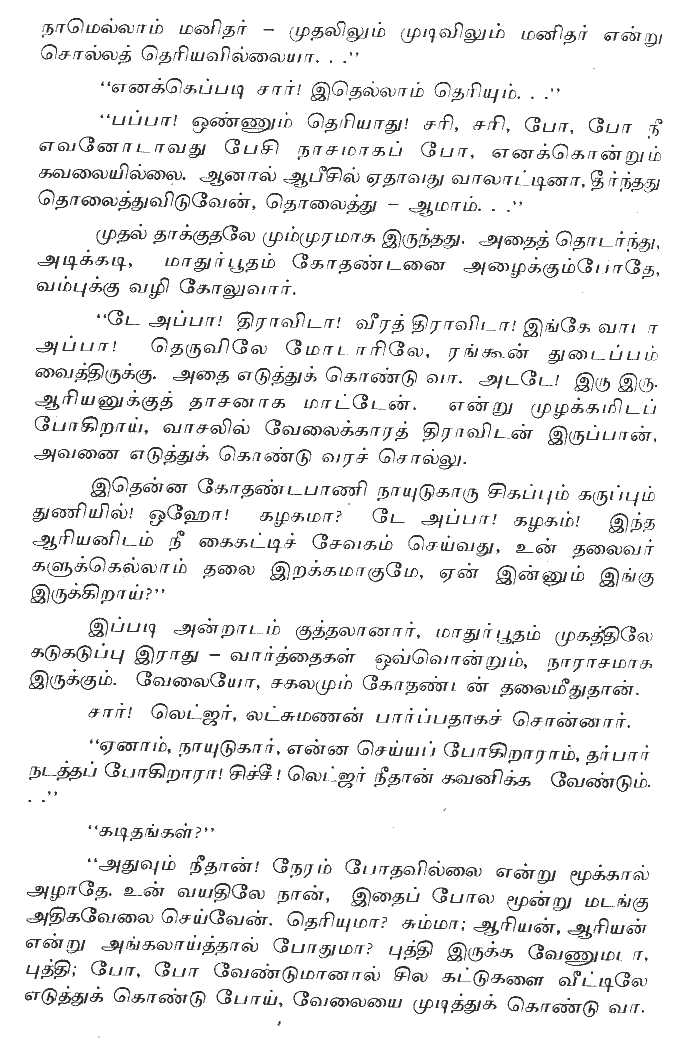 நாமெல்லாம் மனிதர் – முதலிலும் முடிவிலும் மனிதர் என்று
சொல்லத் தெரியவில்லையா. . .''
''எனக்கெப்படி சார்! இதெல்லாம் தெரியும். . .''
''பப்பா! ஒண்ணும் தெரியாது! சரி, சரி, போ, போ நீ
எவனோடாவது பேசி நாசமாகப் போ, எனக்கொன்றும்
கவலையில்லை. ஆனால் ஆபீசில் ஏதாவது வாலாட்டினா, தீர்ந்தது
தொலைத்துவிடுவேன், தொலைத்து – ஆமாம். . .''
முதல் தாக்குதலே மும்முரமாக இருந்தது. அதைத் தொடர்ந்து,
அடிக்கடி, மாதுர்பூதம் கோதண்டனை அழைக்கும்போதே,
வம்புக்கு வழி கோலுவார்.
''டே அப்பா! திராவிடா! வீரத் திராவிடா! இங்கே வாடா
அப்பா! தெருவிலே மோடாரிலே, ரங்கூன் துடைப்பம்
வைத்திருக்கு. அதை எடுத்துக் கொண்டு வா. அடடே! இரு இரு.
ஆரியனுக்குத் தாசனாக மாட்டேன். என்று முழக்கமிடப்
போகிறாய், வாசலில் வேலைக்காரத் திராவிடன் இருப்பான்,
அவனை எடுத்துக் கொண்டு வரச் சொல்லு.
இதென்ன கோதண்டபாணி நாயுடுகாரு சிகப்பும் கருப்பும்
துணியில்! ஓஹோ! கழகமா? டே அப்பா! கழகம்! இந்த
ஆரியனிடம் நீ கைகட்டிச் சேவகம் செய்வது, உன் தலைவர்
களுக்கெல்லாம் தலை இறக்கமாகுமே, ஏன் இன்னும் இங்கு
இருக்கிறாய்?''
இப்படி அன்றாடம் குத்தலானார், மாதுர்பூதம் முகத்திலே
கடுகடுப்பு இராது – வார்த்தைகள் ஒவ்வொன்றும், நாராசமாக
இருக்கும். வேலையோ, சகலமும் கோதண்டன் தலைமீதுதான்.
சார்! லெட்ஜர், லட்சுமணன் பார்ப்பதாகச் சொன்னார்.
''ஏனாம், நாயுடுகார், என்ன செய்யப் போகிறாராம், தர்பார்
நடத்தப் போகிறாரா! சிச்சீ! லெட்ஜர் நீதான் கவனிக்க வேண்டும்.
. .''
''கடிதங்கள்?''
''அதுவும் நீதான்! நேரம் போதவில்லை என்று மூக்கால்
அழாதே. உன் வயதிலே நான், இதைப் போல மூன்று மடங்கு
அதிகவேலை செய்வேன். தெரியுமா? சும்மா; ஆரியன், ஆரியன்
என்று அங்கலாய்த்தால் போதுமா? புத்தி இருக்க வேணுமடா,
புத்தி; போ, போ வேண்டுமானால் சில கட்டுகளை வீட்டிலே
எடுத்துக் கொண்டு போய், வேலையை முடித்துக் கொண்டு வா.